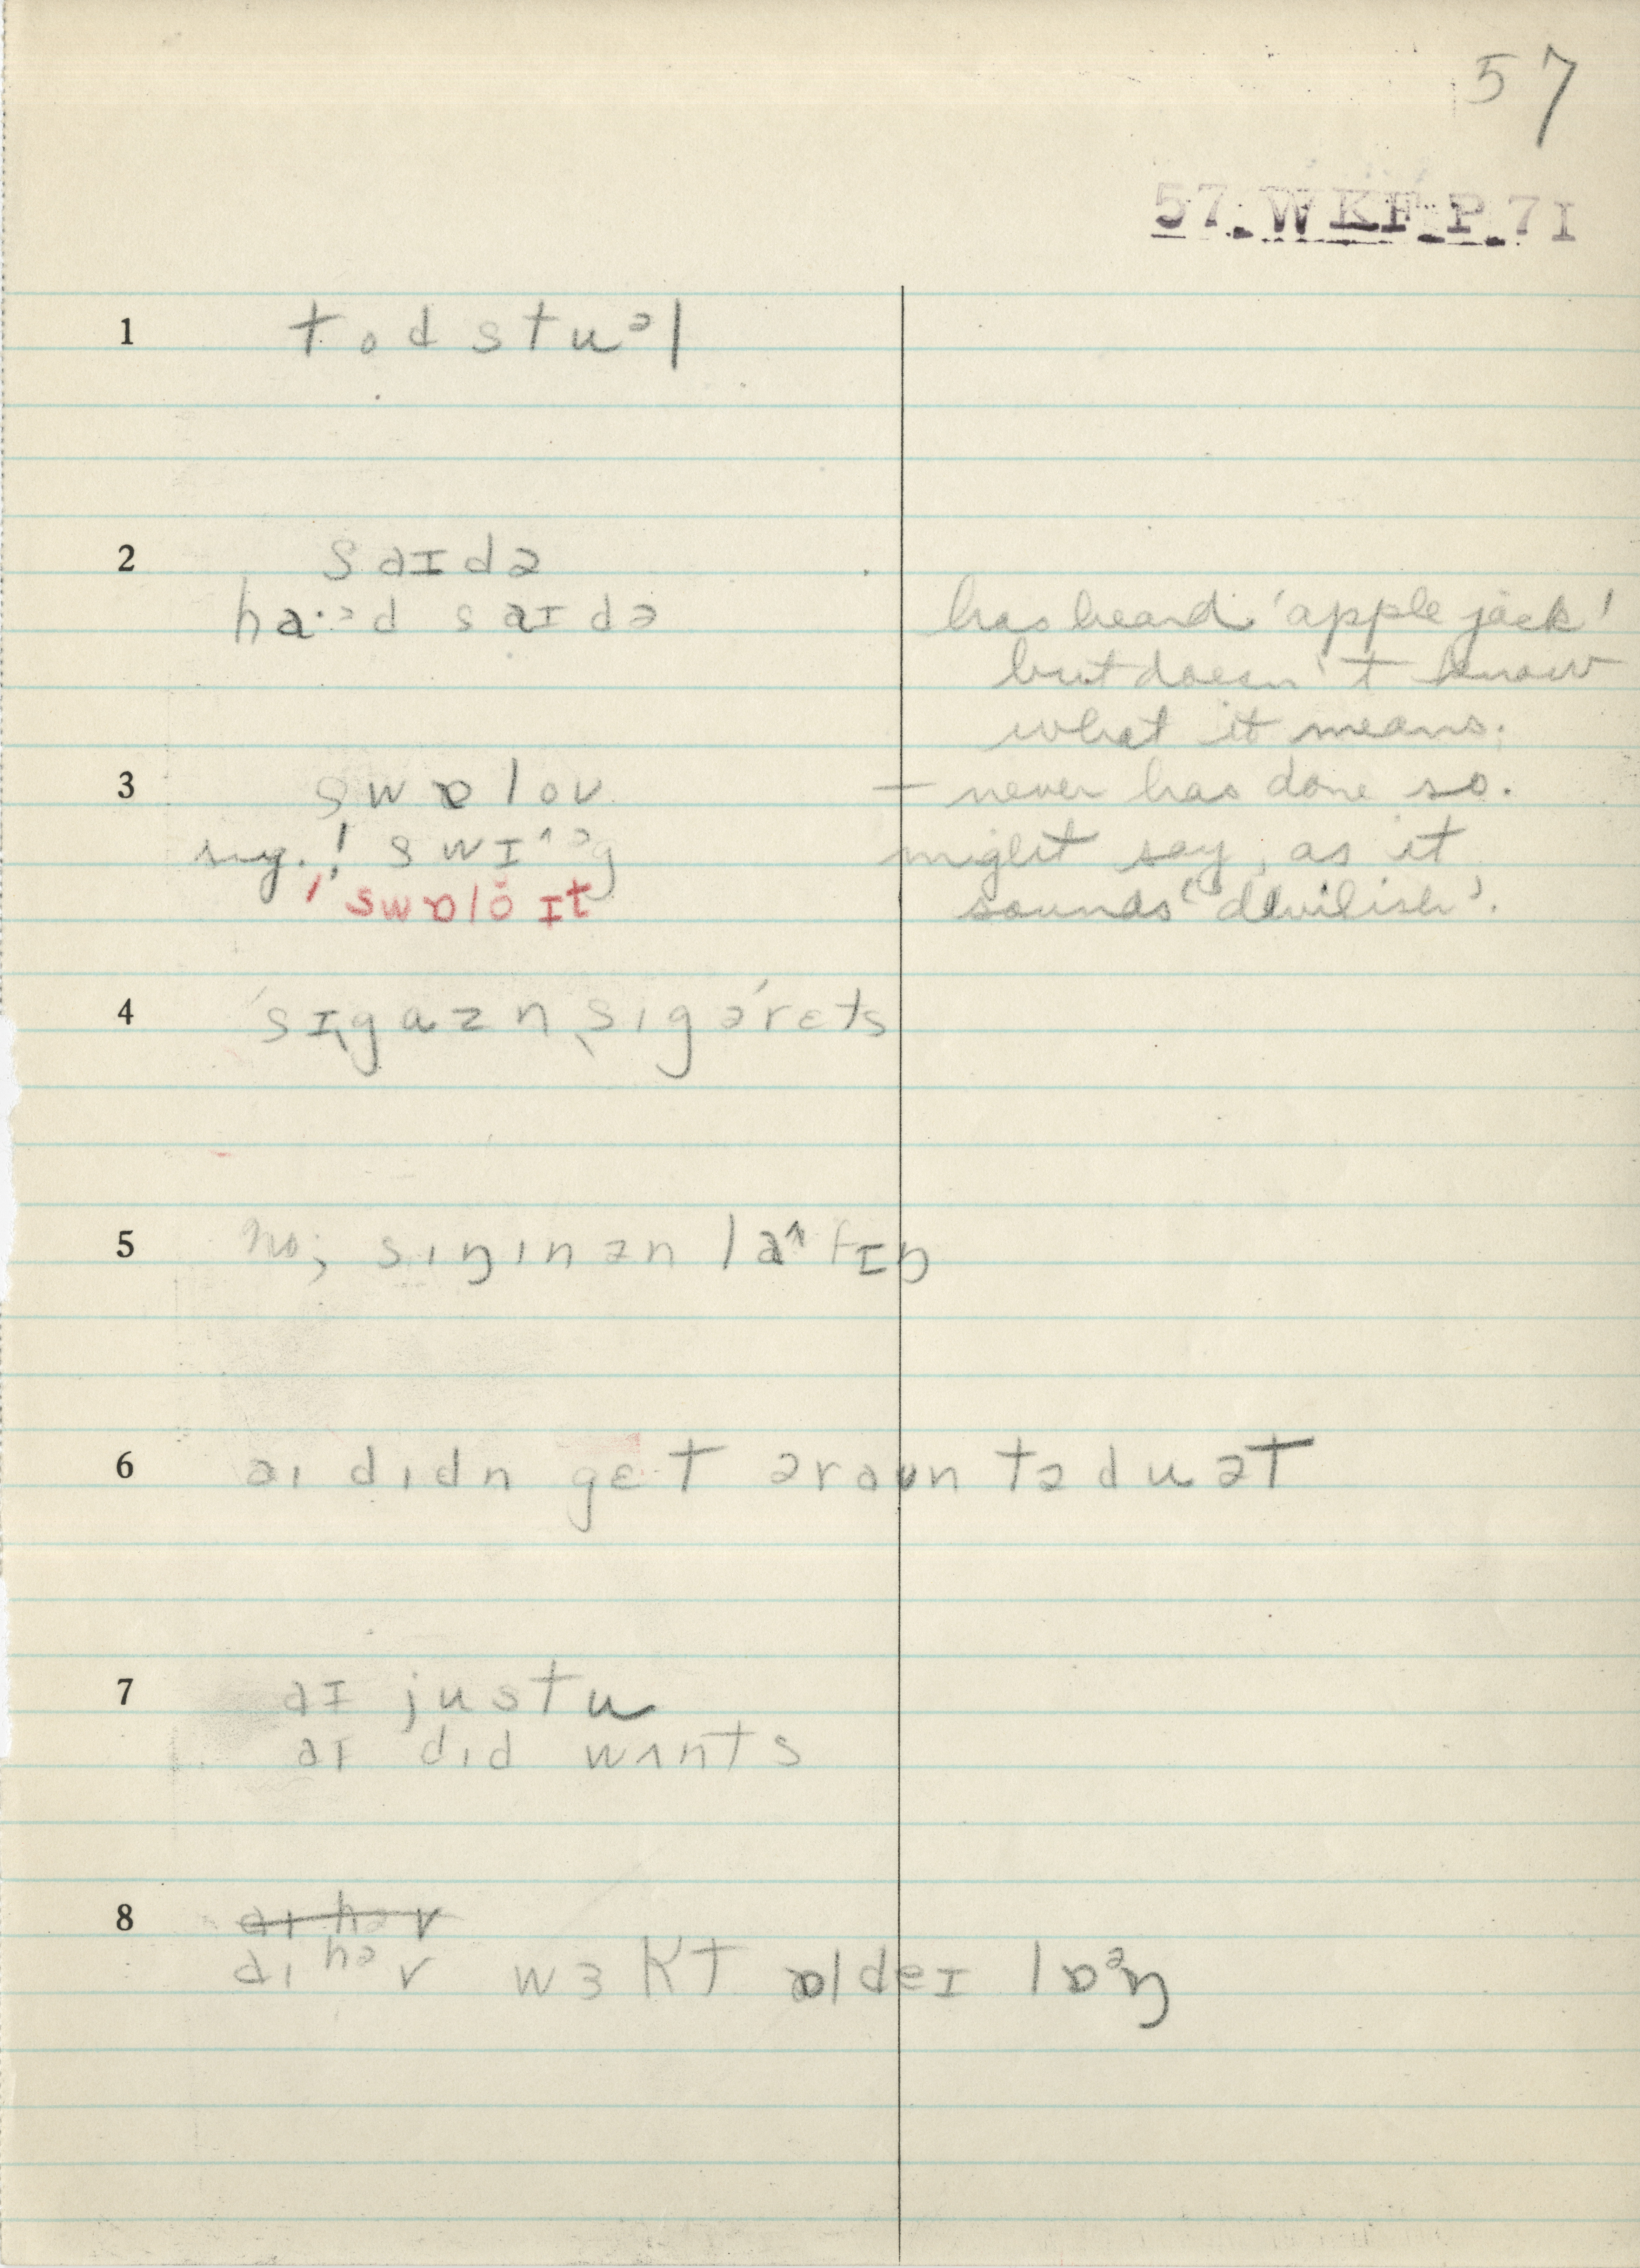 57
57. WKF P. 7I
1 todstuᵊl
2 saɪdə
ha·ᵊd saɪdə
has heard 'apple jack'
but doesn't know
what it means.
3 swɒloʊ
— never has done so.
sug.! swɪ^ᵊg
might say, as it
! swɒlŏ ɪt
sounds 'devilish'.
4 'sɪˌgaz n ˌsɪgə'rɛts
5 no; sɪŋɪn ən la^fɪŋ
6 aɪ dɪdn gɛt əraʊn tədu ət
7 aɪ justu
aɪ dɪd wʌnts
8 aɪ həv
aɪ həv wɜkt ɒldeɪ lɒᵊŋ